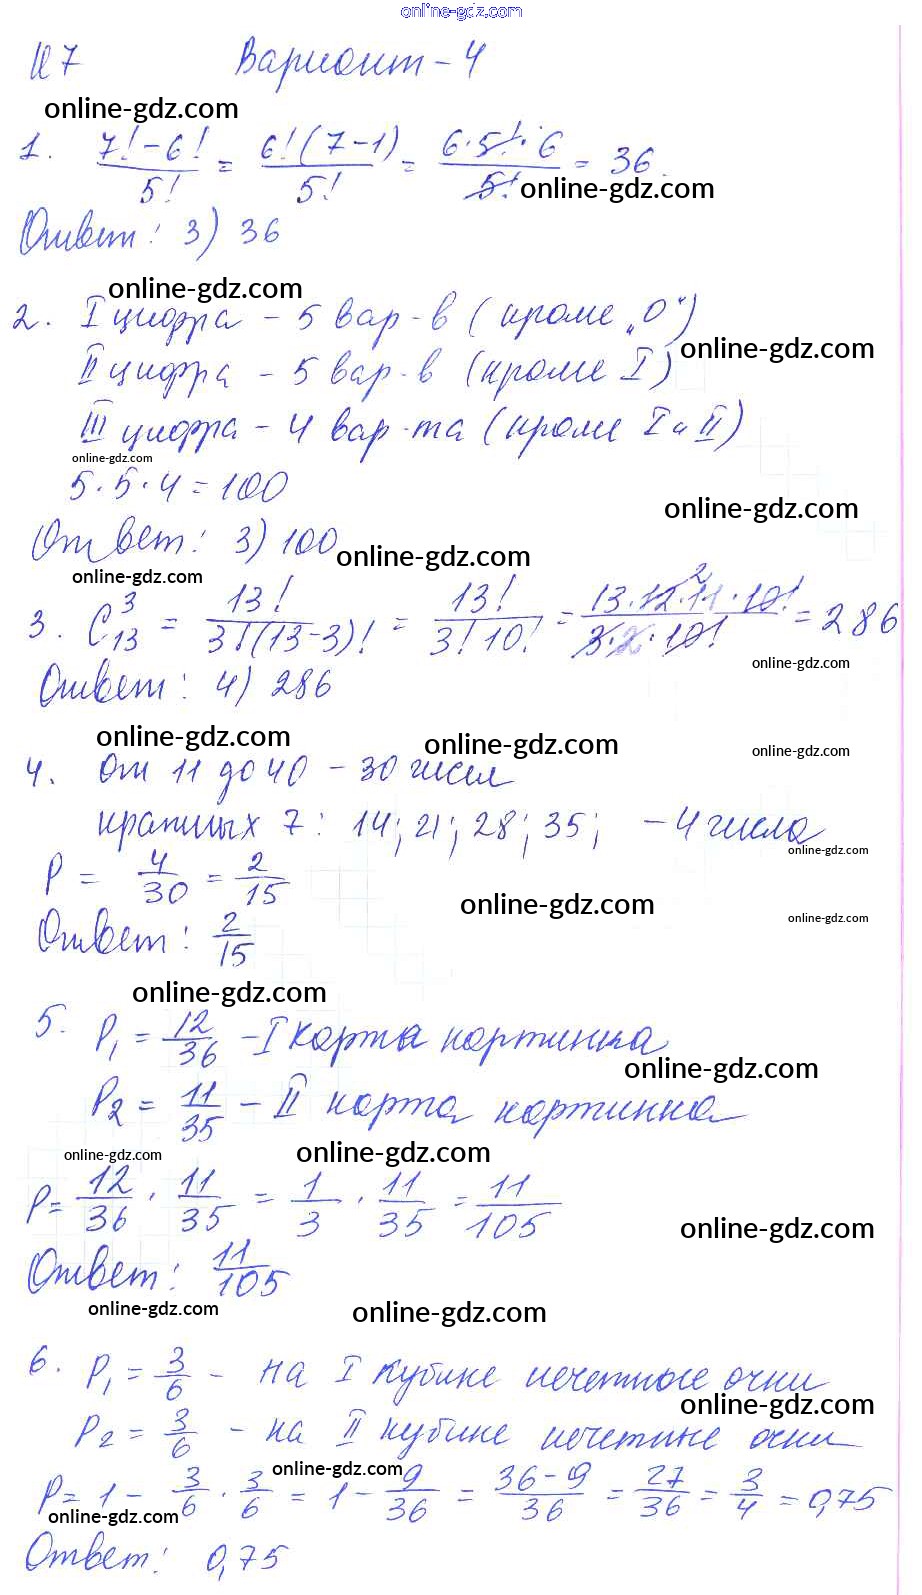 online-gdz.com
И7 Вариант-4
online-gdz.com
1. (7! - 6!)/5! = 6!(7-1)/5! = 6·5!·6/5! = 36.
online-gdz.com
Ответ: 3) 36
online-gdz.com
2. I цифра - 5 вар-в (кроме „0“)
online-gdz.com
II цифра - 5 вар-в (кроме I)
III цифра - 4 вар-та (кроме I и II)
online-gdz.com
5·5·4 = 100
online-gdz.com
Ответ: 3) 100
online-gdz.com
online-gdz.com
3. C₁₃³ = 13!/3!(13-3)! = 13!/3!10! = 13·12·11·10!/3·2·10! = 286
online-gdz.com
Ответ: 4) 286
online-gdz.com
online-gdz.com
online-gdz.com
4. От 11 до 40 - 30 чисел
кратных 7: 14; 21; 28; 35; - 4 числа
online-gdz.com
P = 4/30 = 2/15
online-gdz.com
online-gdz.com
Ответ: 2/15
online-gdz.com
5. P₁ = 12/36 - I карта картинка
online-gdz.com
P₂ = 11/35 - II карта картинка
online-gdz.com
online-gdz.com
P = 12/36 · 11/35 = 1/3 · 11/35 = 11/105
online-gdz.com
Ответ: 11/105
online-gdz.com
online-gdz.com
6. P₁ = 3/6 - на I кубике нечетные очки
online-gdz.com
P₂ = 3/6 - на II кубике нечетные очки
online-gdz.com
P = 1 - 3/6 · 3/6 = 1 - 9/36 = (36-9)/36 = 27/36 = 3/4 = 0,75
online-gdz.com
Ответ: 0,75